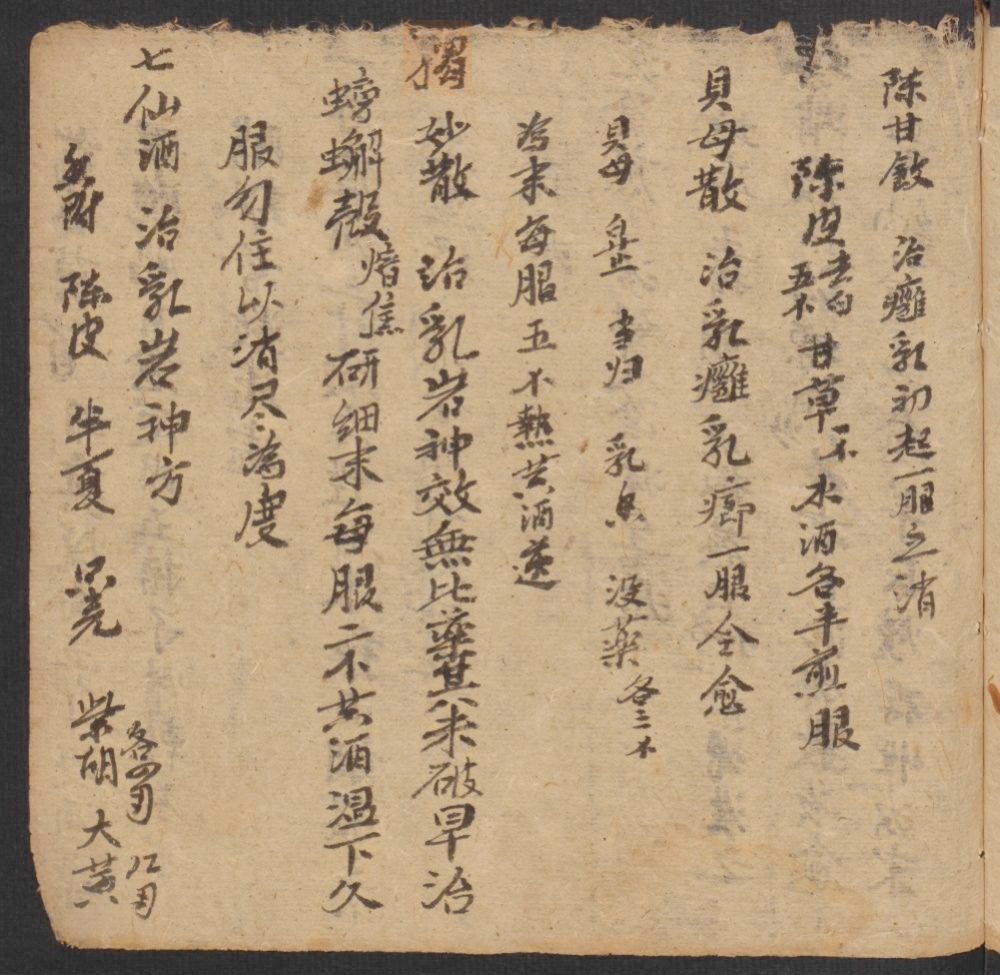 陈甘飲 治癰乳初起一服立消
陈皮去白五不 甘草一不 水酒各半煎服
貝母散 治乳癰乳癤一服全愈
貝母 白芷 当归 乳香 没薬各二不
為末每服五不熱黄酒送
獨妙散 治乳岩神效無比藥其八未破早治
螃蠏殼焙焦研細末每服二不黄酒温下久
服勿住以消尽為度
七仙酒 治乳岩神方
香附 陈皮 半夏 只壳 柴胡各四 大黄